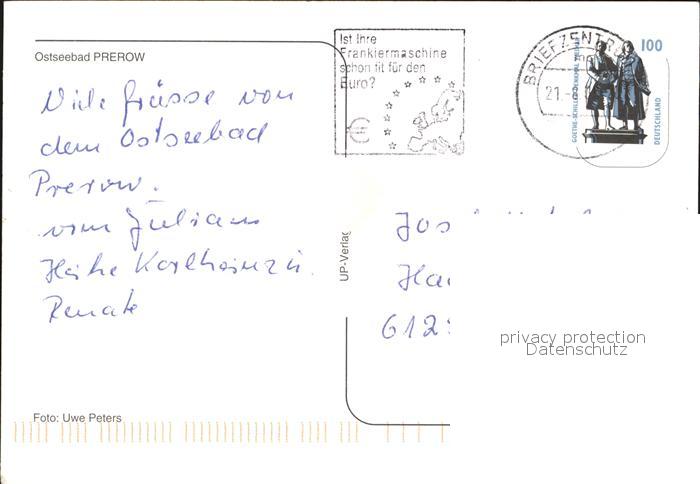 Ostseebad PREROW
Viele Grüsse von
dem Ostseebad
Prerow.
vom Julian
Heike Karlheinz u.
Renate
Foto: Uwe Peters
UP-Verlag
Ist Ihre
Frankiermaschine
schon fit für den
Euro?
€
BRIEFZENTR
21.-8
100
GOETHE-SCHILLER-DENKMAL WEIMAR
DEUTSCHLAND
Jos
Ha
612
privacy protection
Datenschutz